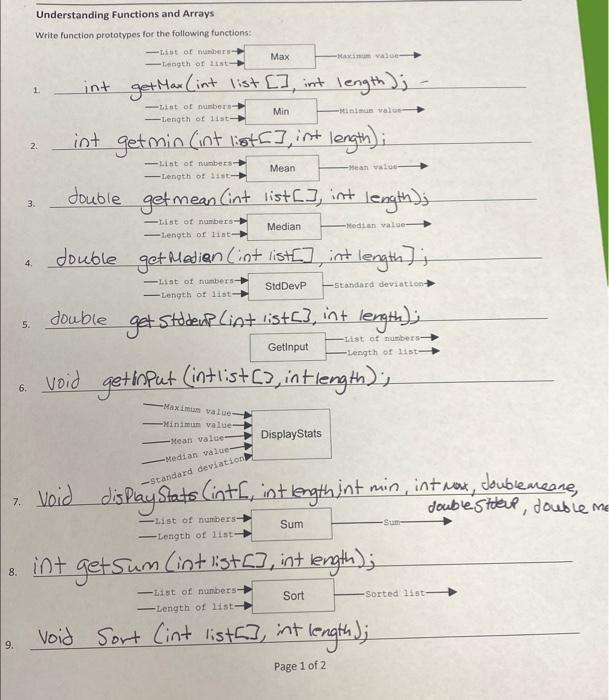 Understanding Functions and Arrays
Write function prototypes for the following functions:
List of numbers
Length of list
Max
Maximum value
1. int getMax(int list [], int length);
List of numbers
Length of list
Min
Minimum value
2. int getmin (int list[], int length);
List of numbers
Length of list
Mean
Mean value
3. double getmean (int list[], int length);
List of numbers
Length of list
Median
Median value
4. double getMedian (int list[], int length];
List of numbers
Length of list
StdDevP
Standard deviation
5. double get StddevP (int list[], int length);
GetInput
List of numbers
Length of list
6. void getInPut (int list [], int length);
Maximum value
Minimum value
Mean value
Median value
Standard deviation
DisplayStats
7. Void disPlayStats (int[, int length, int min, int max, double meane,
double Stdevp, double me
List of numbers
Length of list
Sum
Sum
8. int getSum (int list[], int length);
List of numbers
Length of list
Sort
Sorted list
9. Void Sort (int list[], int length);
Page 1 of 2